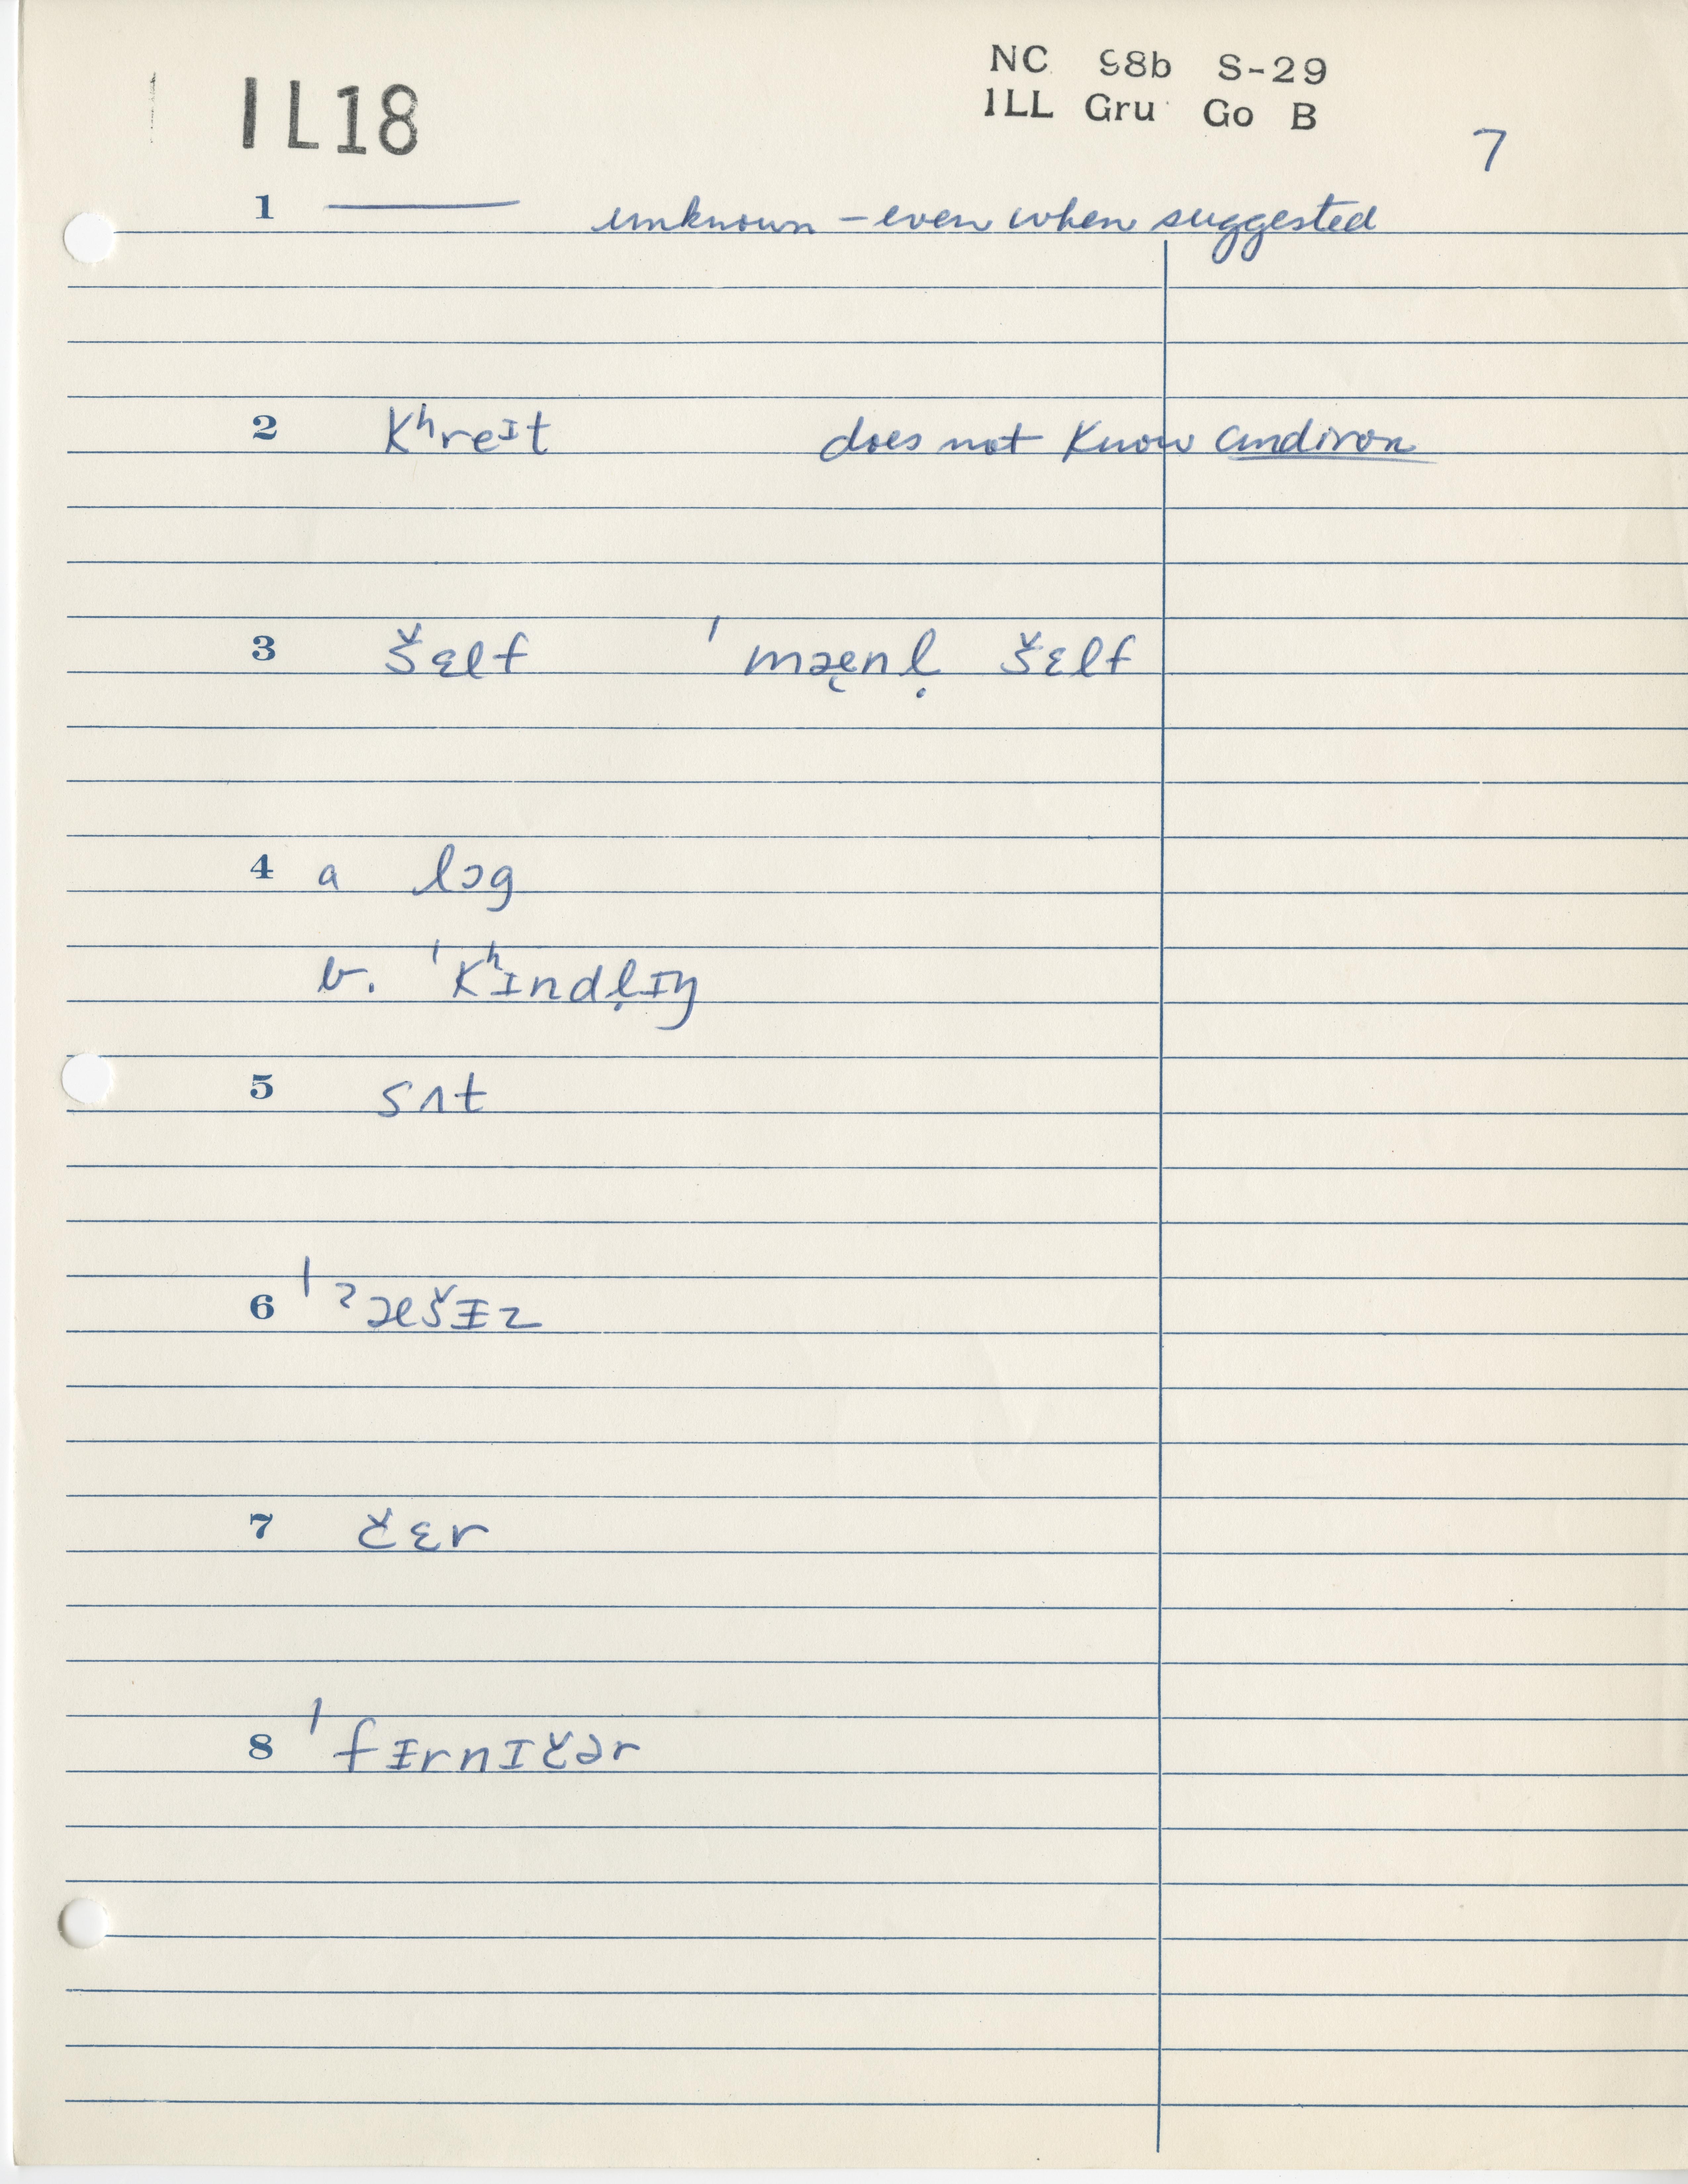 IL18
NC 98b S-29
ILL Gru Go B
7
1 ——— unknown – even when suggested
2 kʰreɪt does not know andiron
3 šɛlf ˈmæ̨nl̩ šɛlf
4 a lɔg
b. ˈkʰɪndl̩ɪŋ
5 sʌt
6 ˈʔæšɪ̵z
7 čɛr
8 ˈfɪ̵rnɪčər